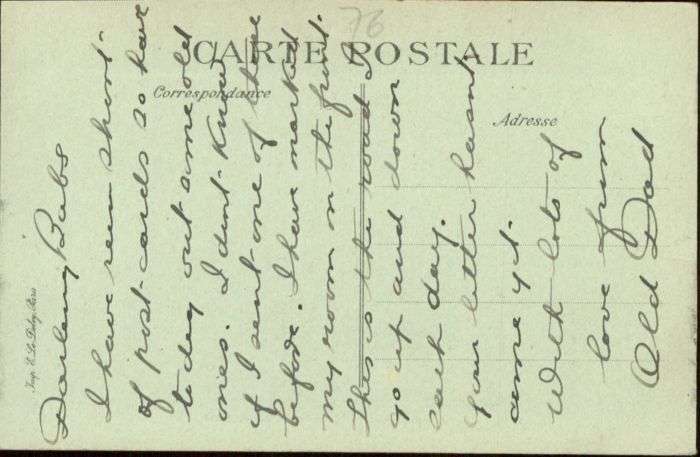 76
CARTE POSTALE
Correspondance
Adresse
Darling Babs
I have run short
of post-cards so have
to dig out some old
ones. I dont know
if I sent one of these
before. I have marked
my room on the front.
This is the road I
go up and down
each day.
Your letter hasnt
come yet.
With lots of
love from
Old Dad